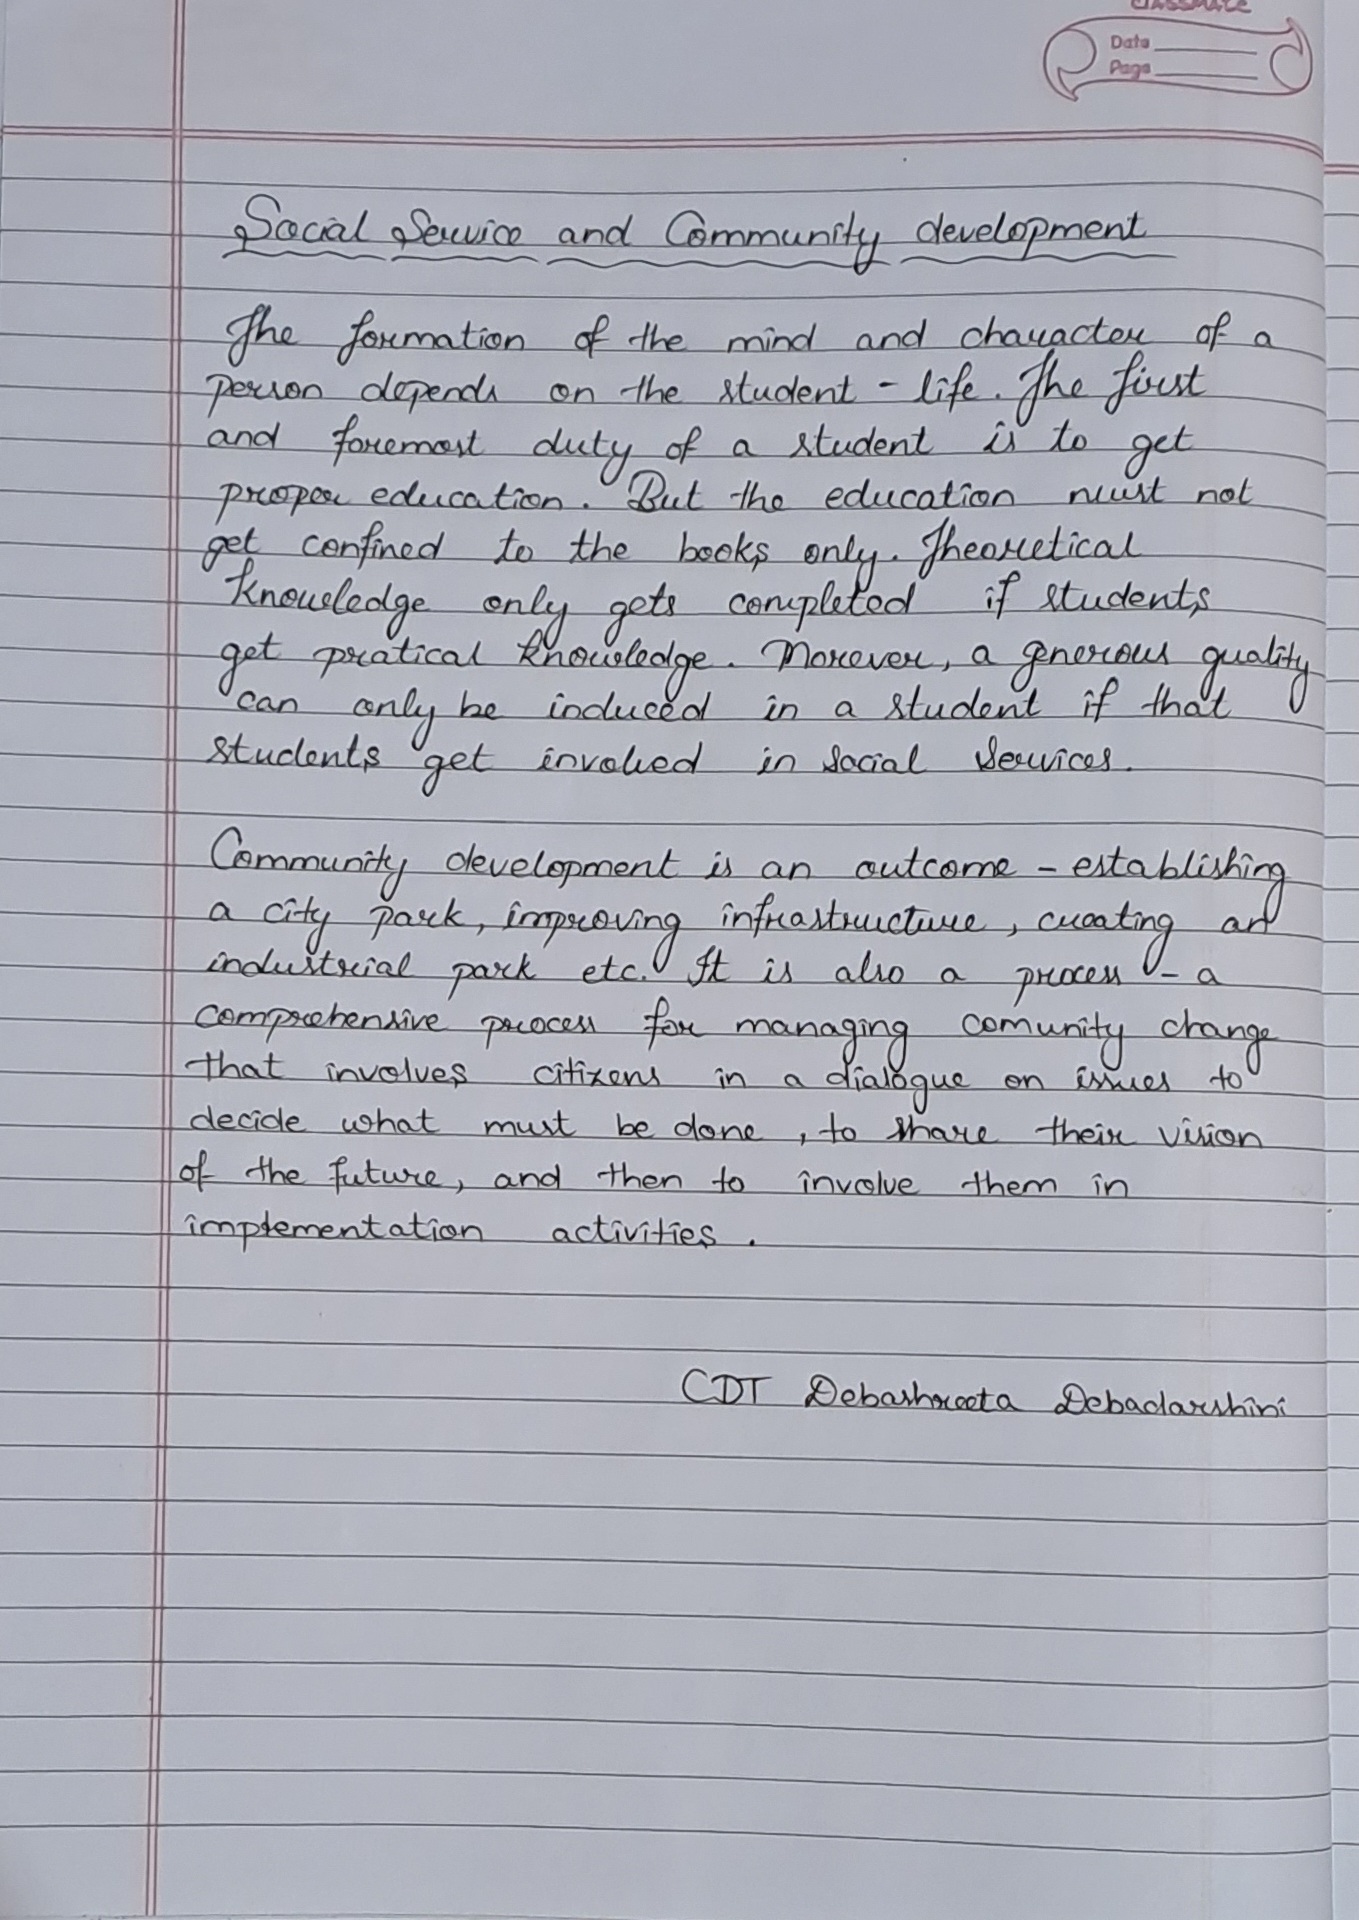 classmate
Date
Page
Social Service and Community development
The formation of the mind and character of a
person depends on the student - life. The first
and foremost duty of a student is to get
proper education. But the education must not
get confined to the books only. Theoretical
knowledge only gets completed if students
get pratical knowledge. Morever, a generous quality
can only be induced in a student if that
students get involved in social services.
Community development is an outcome - establishing
a city park, improving infrastructure, creating an
industrial park etc. It is also a process - a
comprehensive process for managing comunity change
that involves citizens in a dialogue on issues to
decide what must be done, to share their vision
of the future, and then to involve them in
implementation activities.
CDT Debashreeta Debadarshini